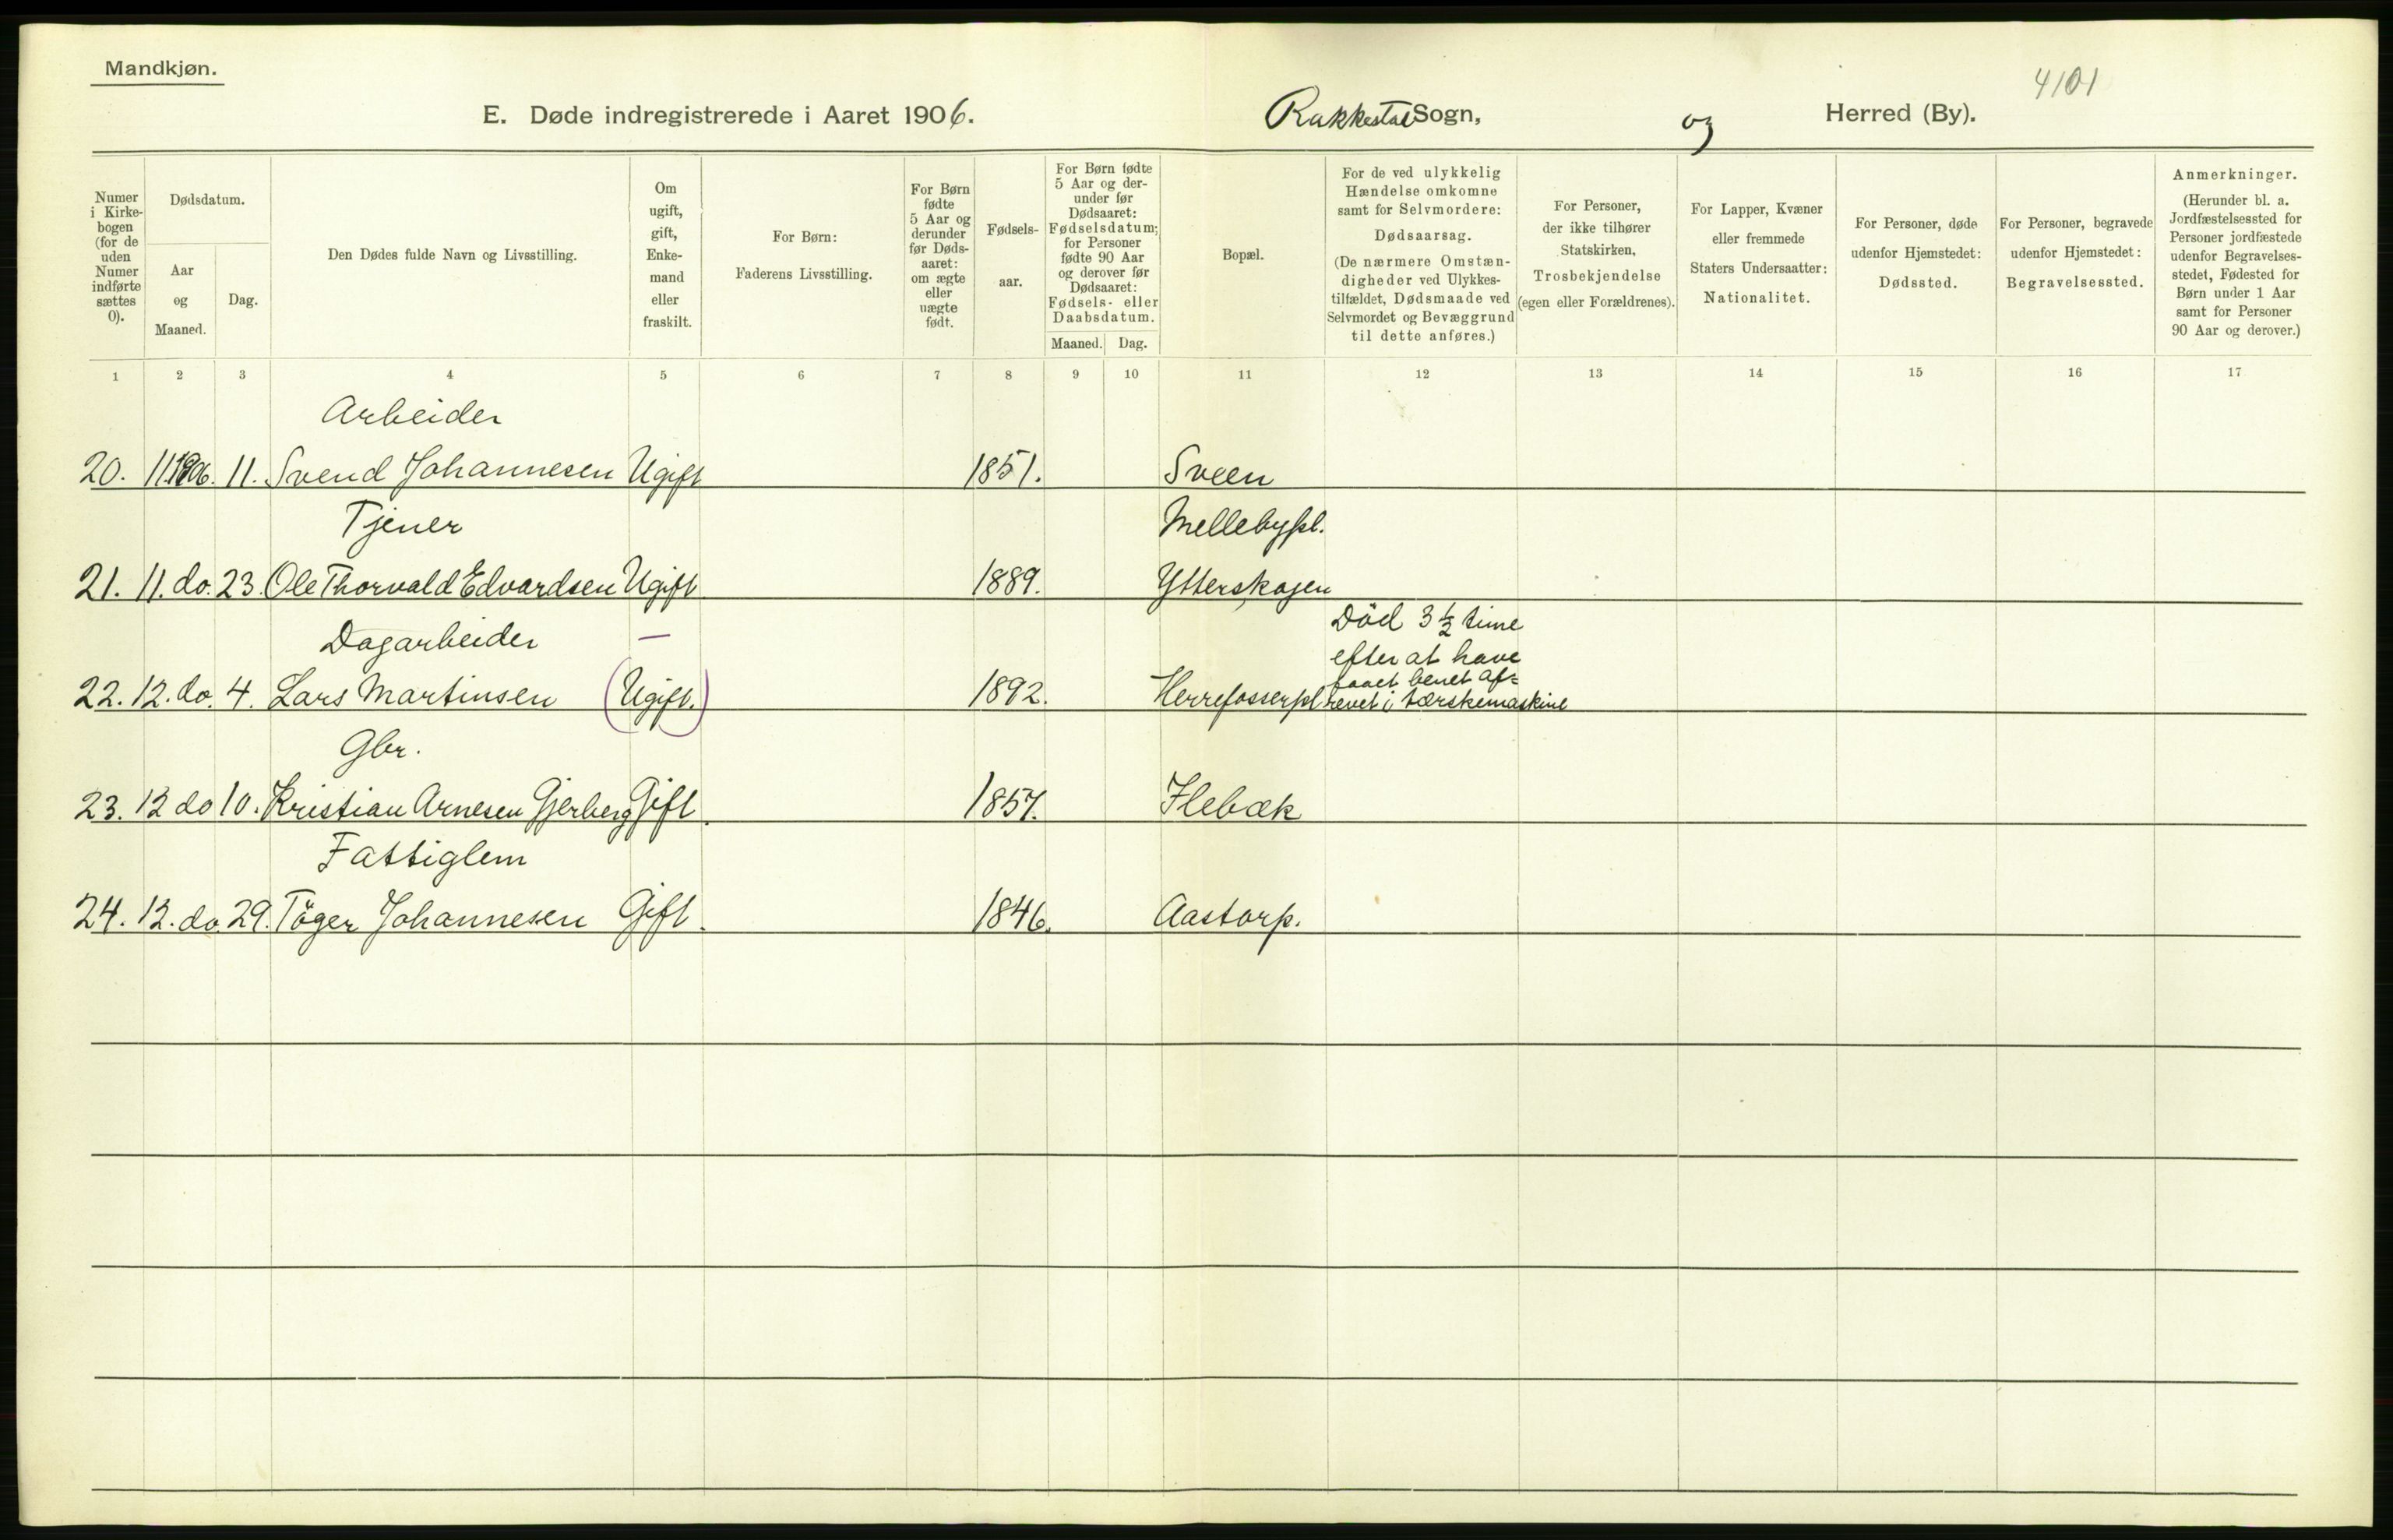 Mandkjøn.
4101
E. Døde indregistrerede i Aaret 1906. Rakkestad Sogn, og Herred (By).
Numer i Kirkebogen (for de uden Numer indførte sættes 0).
Dødsdatum.
Aar og Maaned.
Dag.
Den Dødes fulde Navn og Livsstilling.
Om ugift, gift, Enkemand eller fraskilt.
For Børn:
Faderens Livsstilling.
For Børn fødte 5 Aar og derunder før Dødsaaret: om ægte eller uægte født.
Fødselsaar.
For Børn fødte 5 Aar og derunder før Dødsaaret: Fødselsdatum; for Personer fødte 90 Aar og derover før Dødsaaret: Fødsels- eller Daabsdatum.
Maaned. Dag.
Bopæl.
For de ved ulykkelig Hændelse omkomne samt for Selvmordere: Dødsaarsag. (De nærmere Omstændigheder ved Ulykkestilfældet, Dødsmaade ved Selvmordet og Bevæggrund til dette anføres.)
For Personer, der ikke tilhører Statskirken, Trosbekjendelse (egen eller Forældrenes).
For Lapper, Kvæner eller fremmede Staters Undersaatter: Nationalitet.
For Personer, døde udenfor Hjemstedet: Dødssted.
For Personer, begravede udenfor Hjemstedet: Begravelsessted.
Anmerkninger. (Herunder bl. a. Jordfæstelsessted for Personer jordfæstede udenfor Begravelsesstedet, Fødested for Børn under 1 Aar samt for Personer 90 Aar og derover.)
1 2 3 4 5 6 7 8 9 10 11 12 13 14 15 16 17
Arbeider
20. 11.1906. 11. Svend Johannesen Ugift 1851. Sveen
Tjener Mellebypl.
21. 11. do. 23. Ole Thorvald Edvardsen Ugift 1889. Ytterskogen
Dagarbeider — Död 3 ½ time
efter at have
faaet benet af=
22. 12. do. 4. Lars Martinsen (Ugift.) 1892. Herrefosserpl revet i tærskemaskine
Gbr.
23. 12 do 10. Kristian Arnesen Gjerberg Gift. 1857. Flebæk
Fattiglem
24. 12. do. 29. Töger Johannesen Gift. 1846. Aastorp.